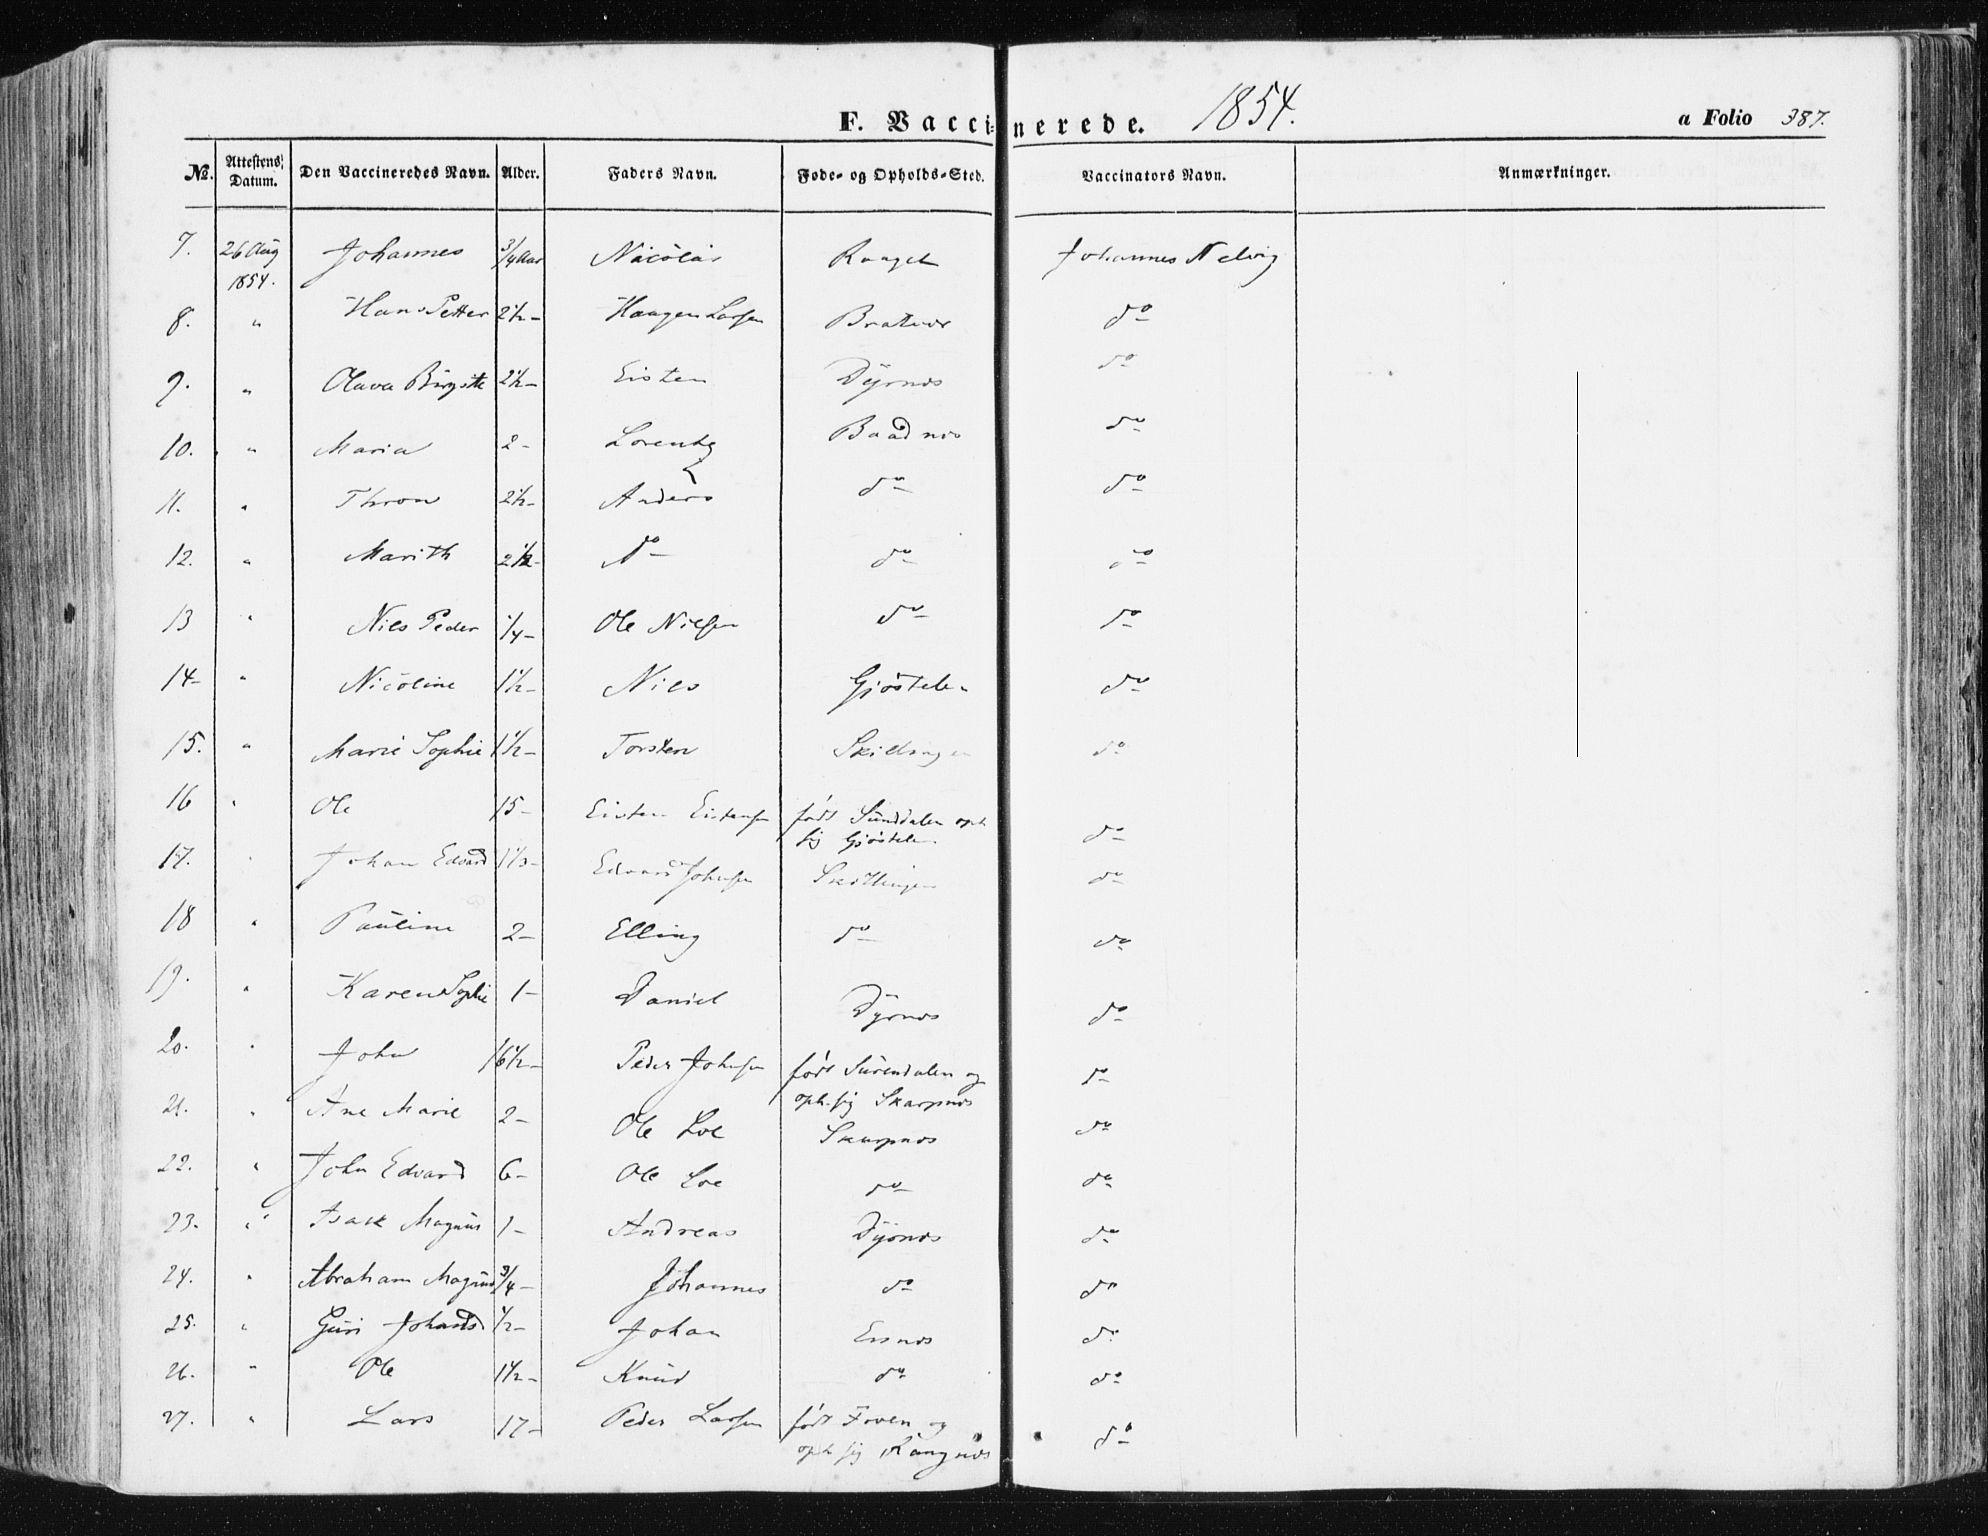 F. Vaccinerede. 1854.
a Folio 387.
No. Attestens Datum. Den Vaccineredes Navn. Alder. Faders Navn. Føde- og Opholds-Sted. Vaccinators Navn. Anmærkninger.
7. 26 Aug 1854. Johannes 3/4 Aar Nicolai Johannes Nelvig
8. " Hans Petter 2 1/2 - Haagen Larsen do
9. " Olava 2 1/2 - Eisten Dyrnes do
10. " Maria 2 - Lorentz Baadnes do
11. " Thron 2 1/2 - Anders do do
12. " Marith 2 1/2 - do do do
13 " Nils Peder 1/4 - Ole Nilsen do do
14 - " Nicoline 1 1/2 - Nils Gjøstelen do
15. " Marie Sophie 1 1/2 - Torsten Skillingen do
16 " Ole 15 - Eisten Eistensen født Sunddalen oph.
sig Gjøstelen. do
17. " Johan Edvard Edvard Johnsen Skillingen do
18 " Pauline 2 - Elling do do
19. " Karen Sophie 1 - Daniel Dyrnes do
20. " John 16 1/2 - Peder Johnsen født Surendalen og
oph. sig Skarpnes do
21. " Ane Marie 2 - Ole Loe Skarpnes do
22. " John Edvard 6 - Ole Loe do do
23. " Isak Magnus 1 - Andreas Dyrnes do
24. " Abraham Magnus 3/4 - Johannes do do
25. " Guri 1/2 - Johan do
26. " Ole 1 1/2 - Knud do do
27. " Lars 17 - Peder Larsen født og
oph. sig do